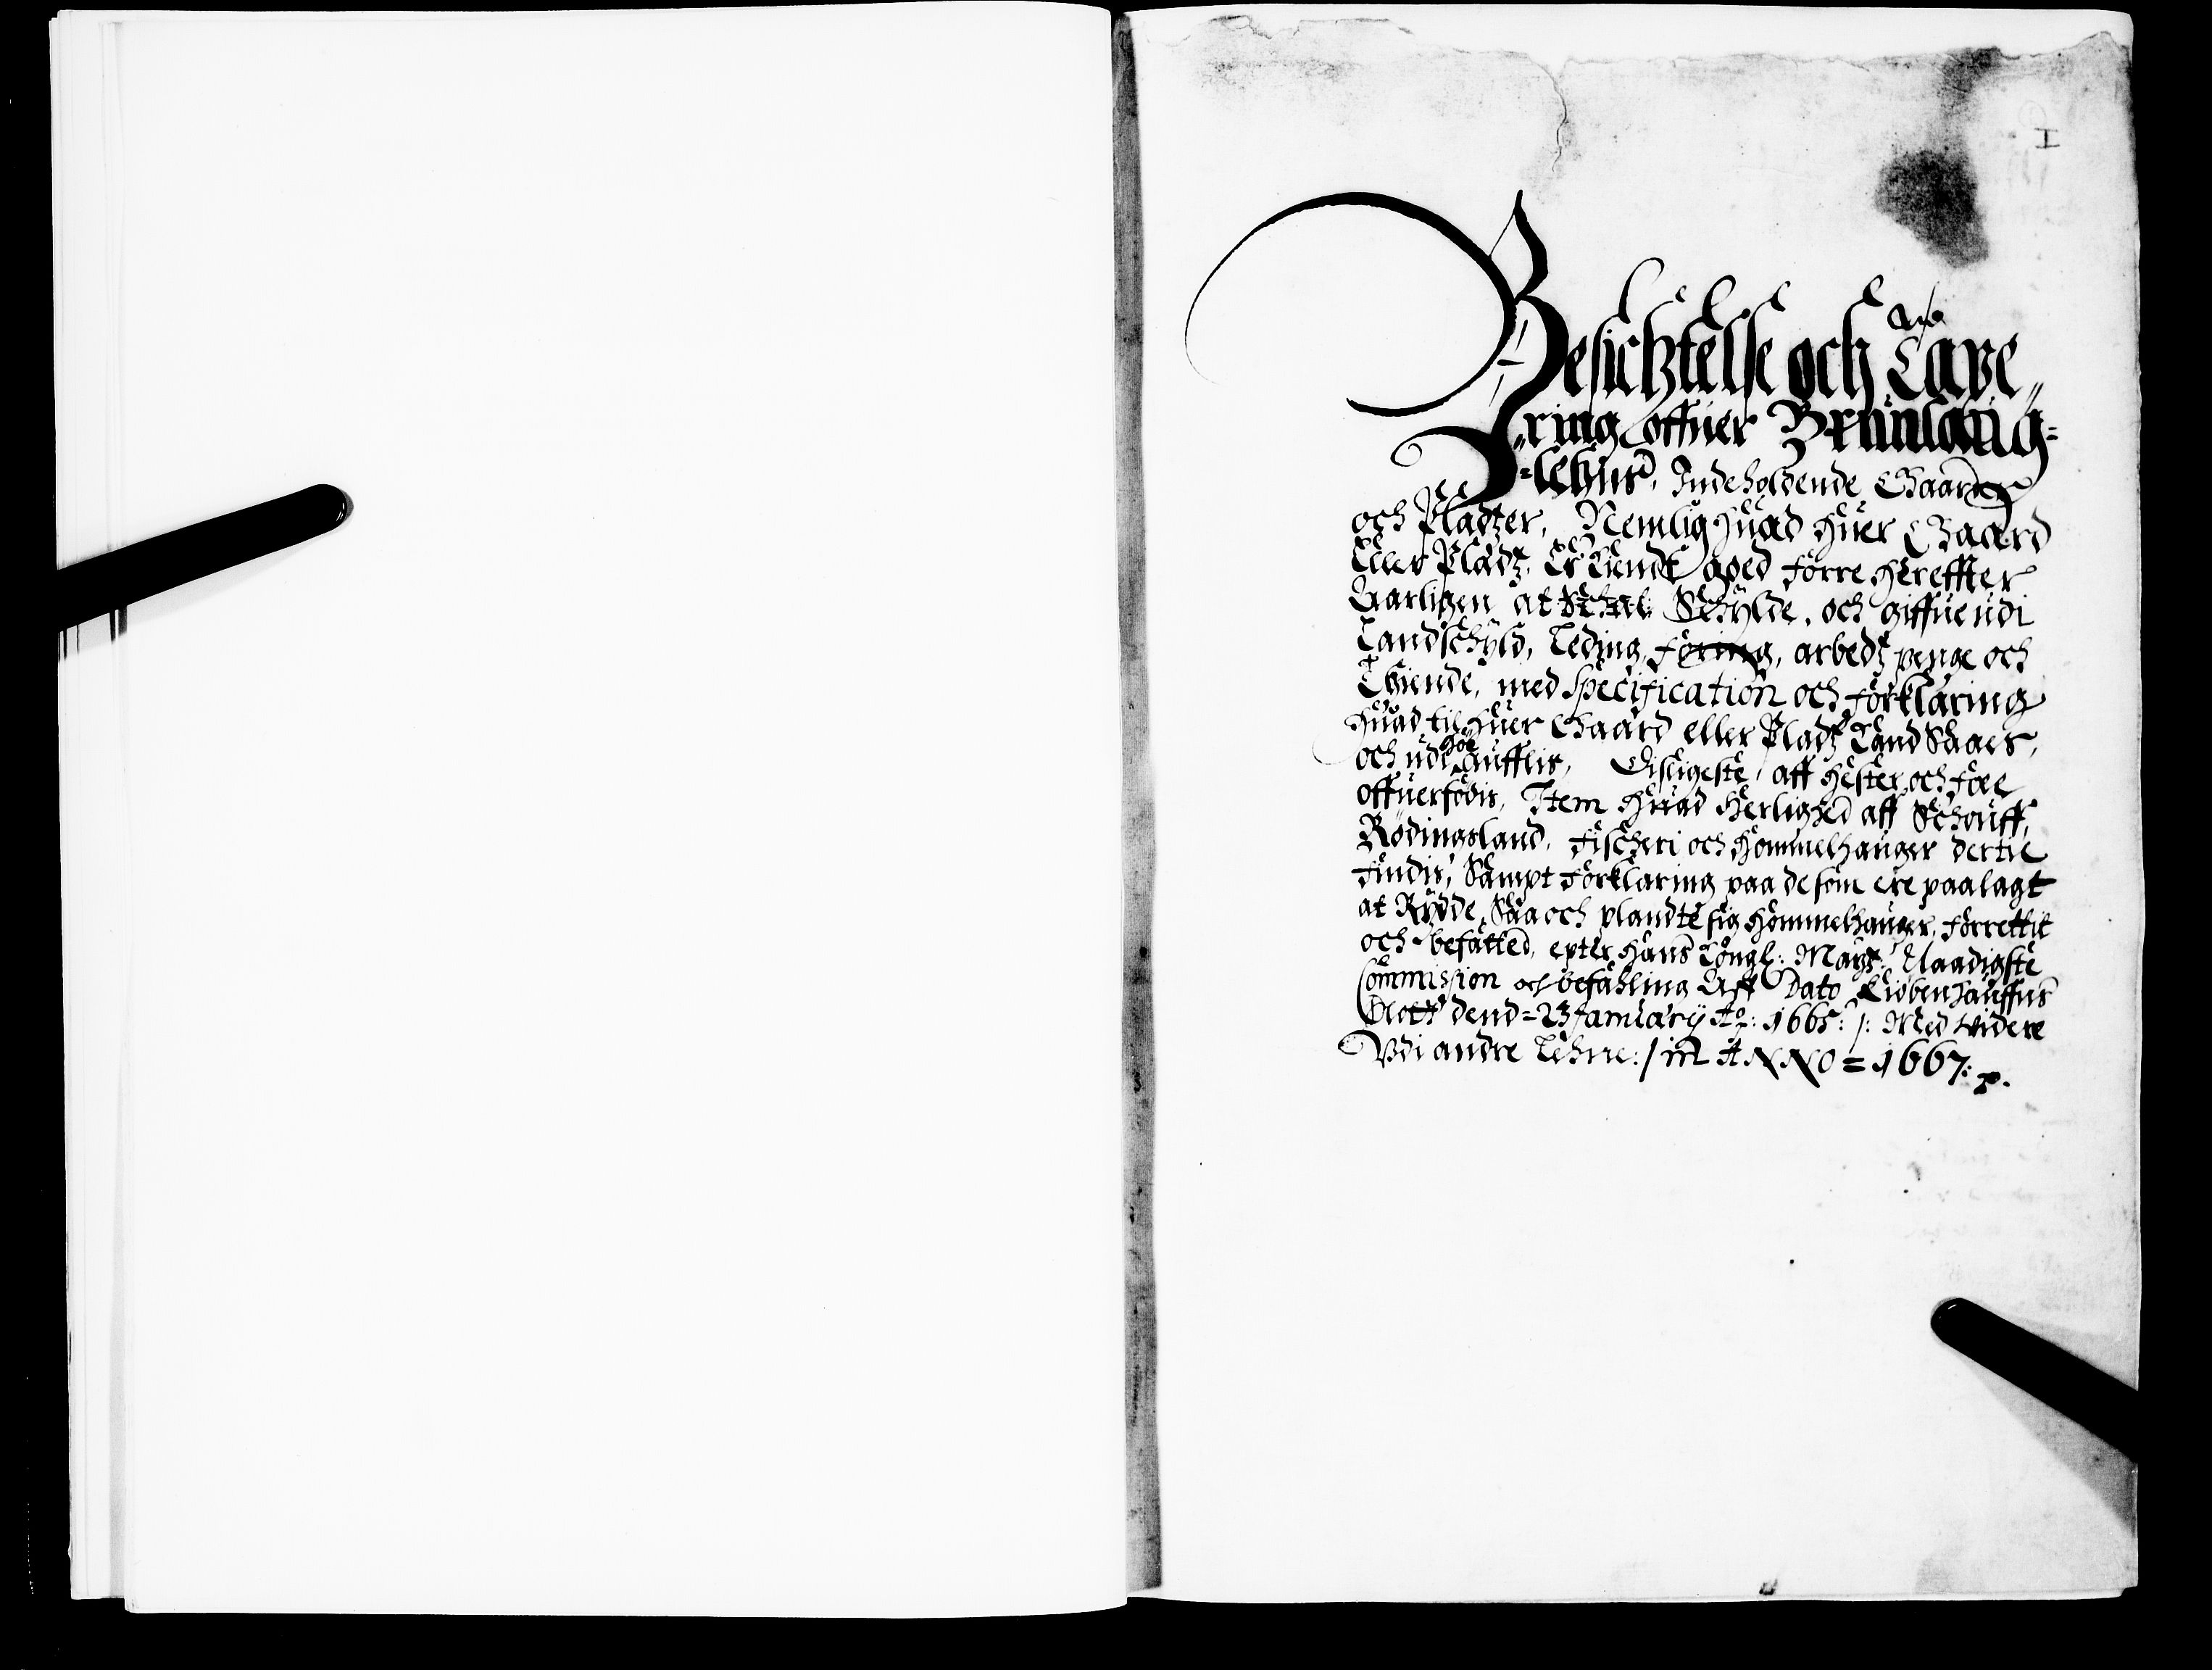 I
Besichtelse och Taxe„
„ring offuer Brunlaug=
=Lehns, Indeholdende Gaarder
och Pladtzer, Nemlig huad huer Gaard
Eller Pladtz, Er Tiendt goed förre hereffter
Aarligen at Schylde, och giffue udi
Landschyld, Leding, föring, arbedtz penge och
Thiende, med Specification och forklaring
huad til huer Gaard eller Pladtz Kand Saaes,
och udi höe Auffles, Disligeste, aff hester och föe
offuerfödis, Item huad Herlighed aff Schouff,
Rödingsland, Fischeri och Hommelhauger dertil
findis, Sampt forklaring paa de som ere paalagt
at Rydde, Saa och plandte sig hommelhauger, forrettit
och befatted, epter hans Kongl: Mayts: Naadigste
Commission och befahling Aff Dato Kiøbenhauffns
Slott dend = 23 January Ao: 1665: /: Med widere
Vdi andre Lehne: / in ANNO = 1667: p.